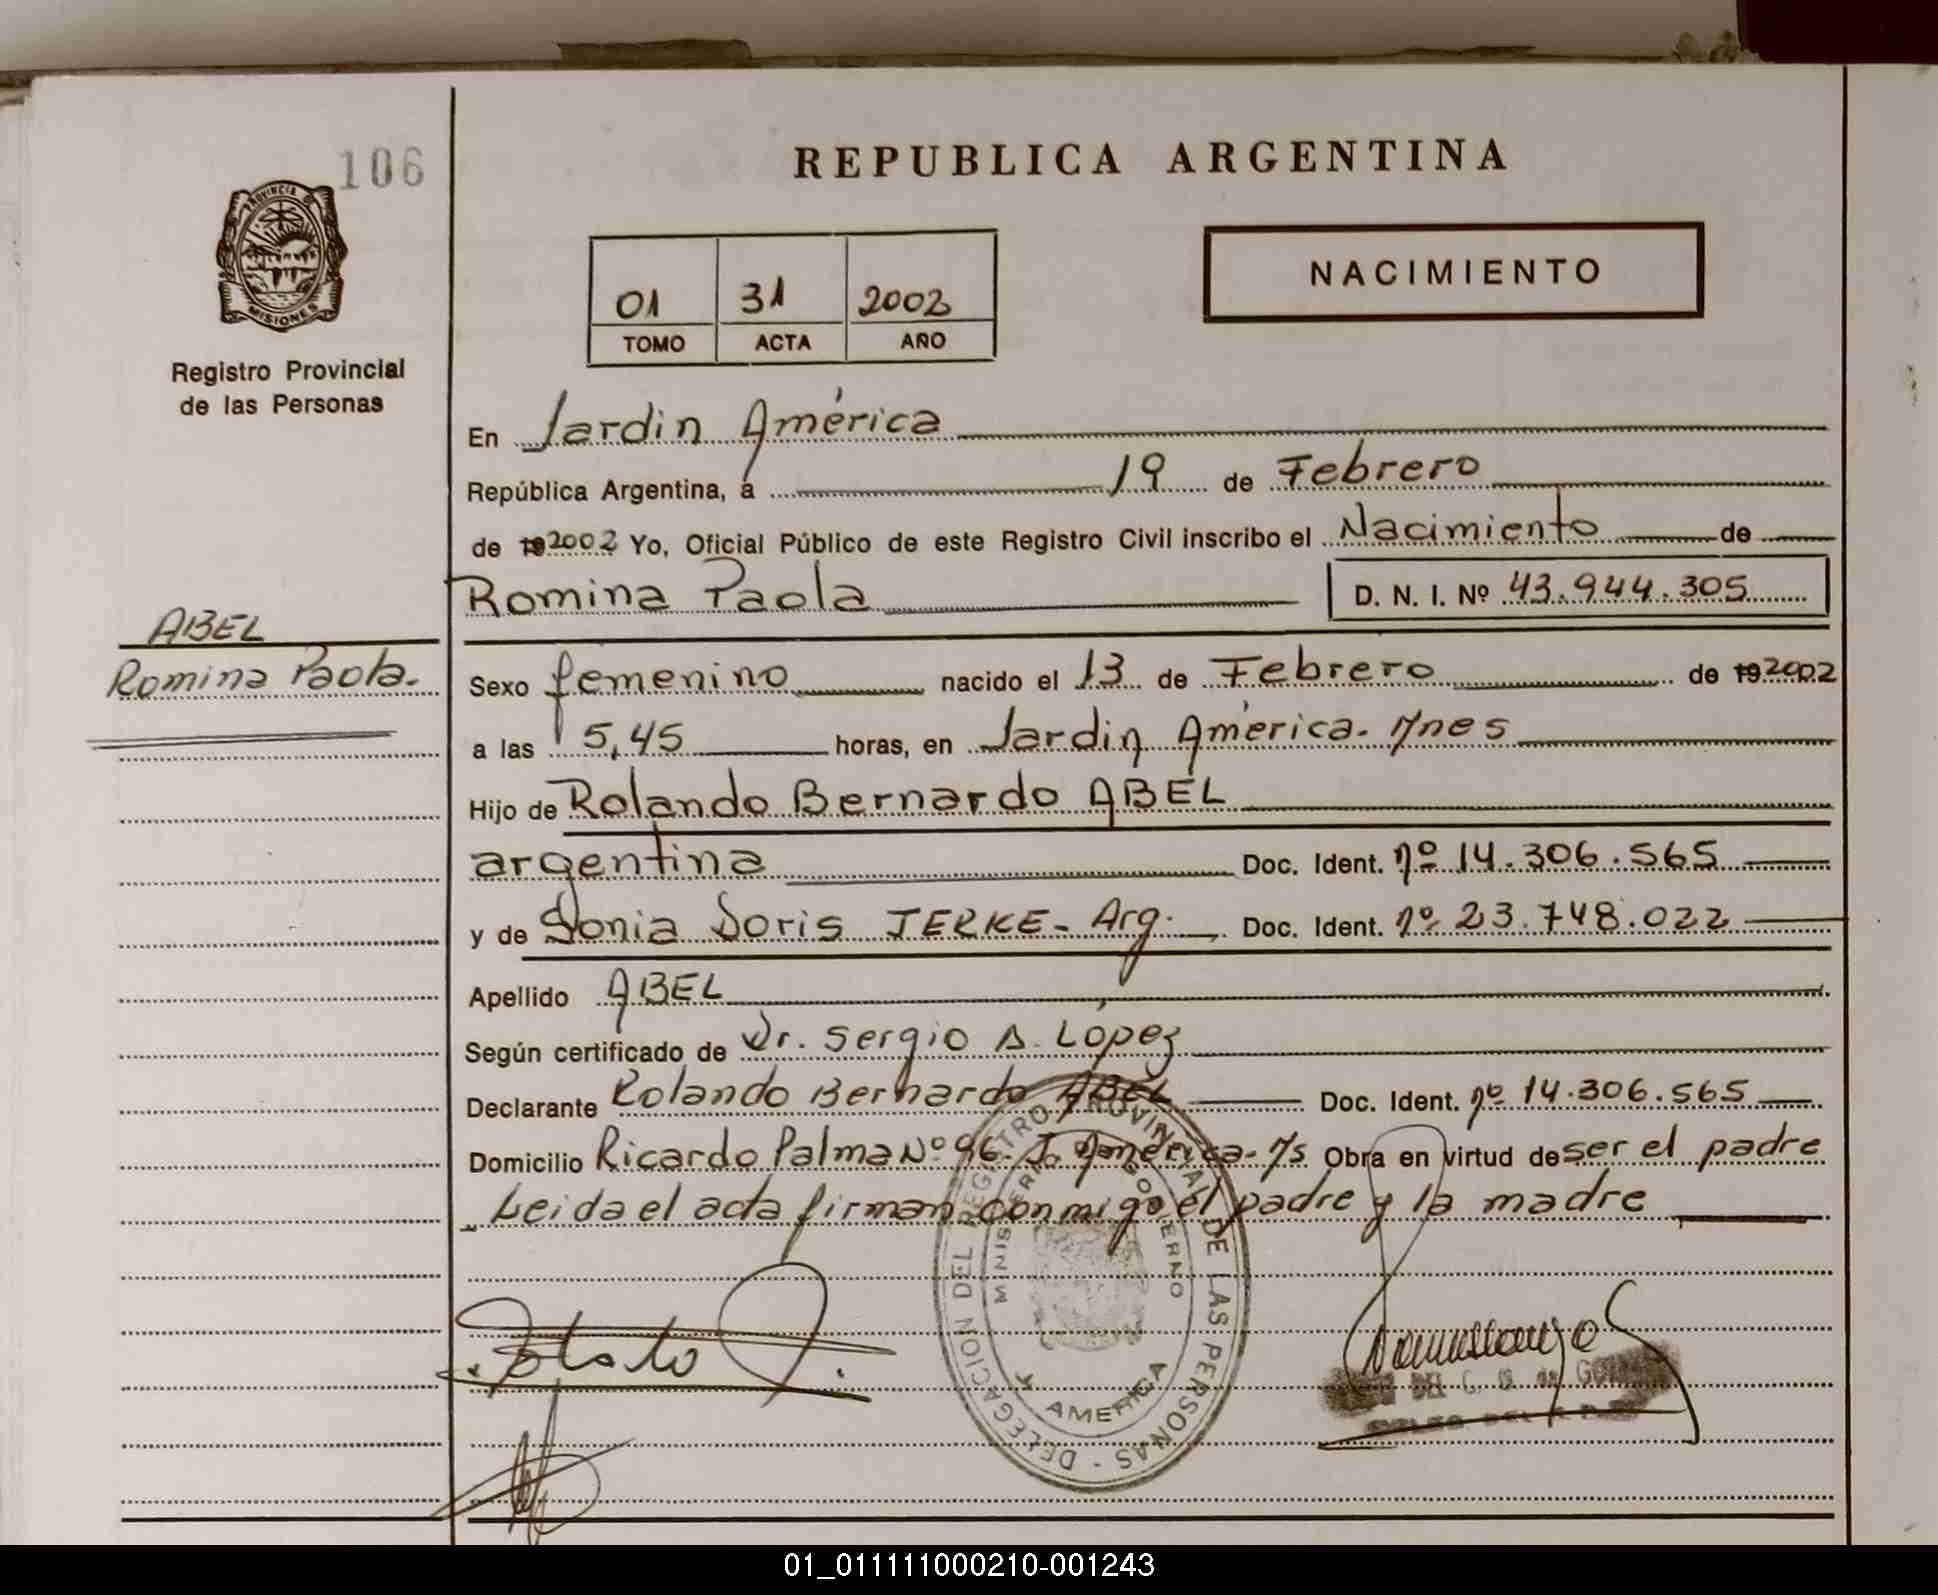 106
REPUBLICA ARGENTINA
PROVINCIA DE
MISIONES
Registro Provincial
de las Personas
01 31 2002
TOMO ACTA AÑO
NACIMIENTO
En Jardin América
República Argentina, a 19 de Febrero
de 19 2002 Yo, Oficial Público de este Registro Civil inscribo el Nacimiento de
Romina Paola D. N. I. Nº 43.944.305
ABEL
Romina Paola.
Sexo femenino nacido el 13 de Febrero de 19 2002
a las 5,45 horas, en Jardin América. Mnes
Hijo de Rolando Bernardo ABEL
argentina Doc. Ident. nº 14.306.565
y de Sonia Doris JERKE - Arg. Doc. Ident. nº 23.748.022
Apellido ABEL
Según certificado de Dr. Sergio A. López
Declarante Rolando Bernardo ABEL Doc. Ident. nº 14.306.565
Domicilio Ricardo Palma Nº 96. J. América - Ms Obra en virtud de ser el padre
Leida el acta firman conmigo el padre y la madre
DELEGACION DEL REGISTRO PROVINCIAL DE LAS PERSONAS
AMERICA
01_011111000210-001243